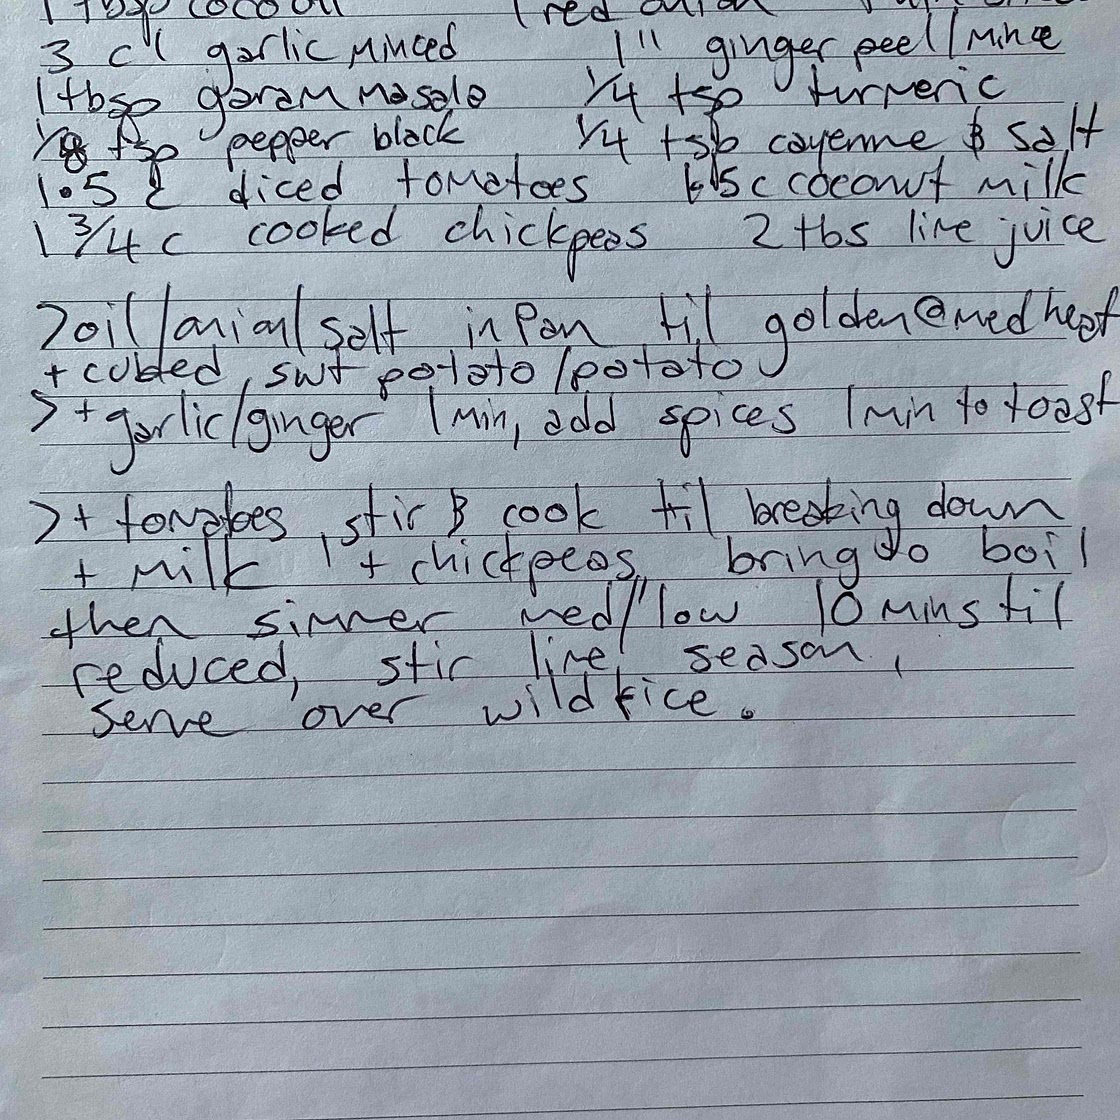 1 tbsp coco oil 1 red onion
3 cl garlic minced 1" ginger peel/mince
1 tbsp garam masala 1/4 tsp turmeric
1/8 tsp pepper black 1/4 tsp cayenne & salt
1.5 c diced tomatoes 1.5 c coconut milk
1 3/4 c cooked chickpeas 2 tbs lime juice
>oil/onion/salt in Pan til golden @ med heat
+ cubed swt potato/potato
>+ garlic/ginger 1 min, add spices 1 min to toast
>+ tomatoes, stir & cook til breaking down
+ milk, + chickpeas, bring to boil
then simmer med/low 10 mins til
reduced, stir lime, season,
serve over wild rice.